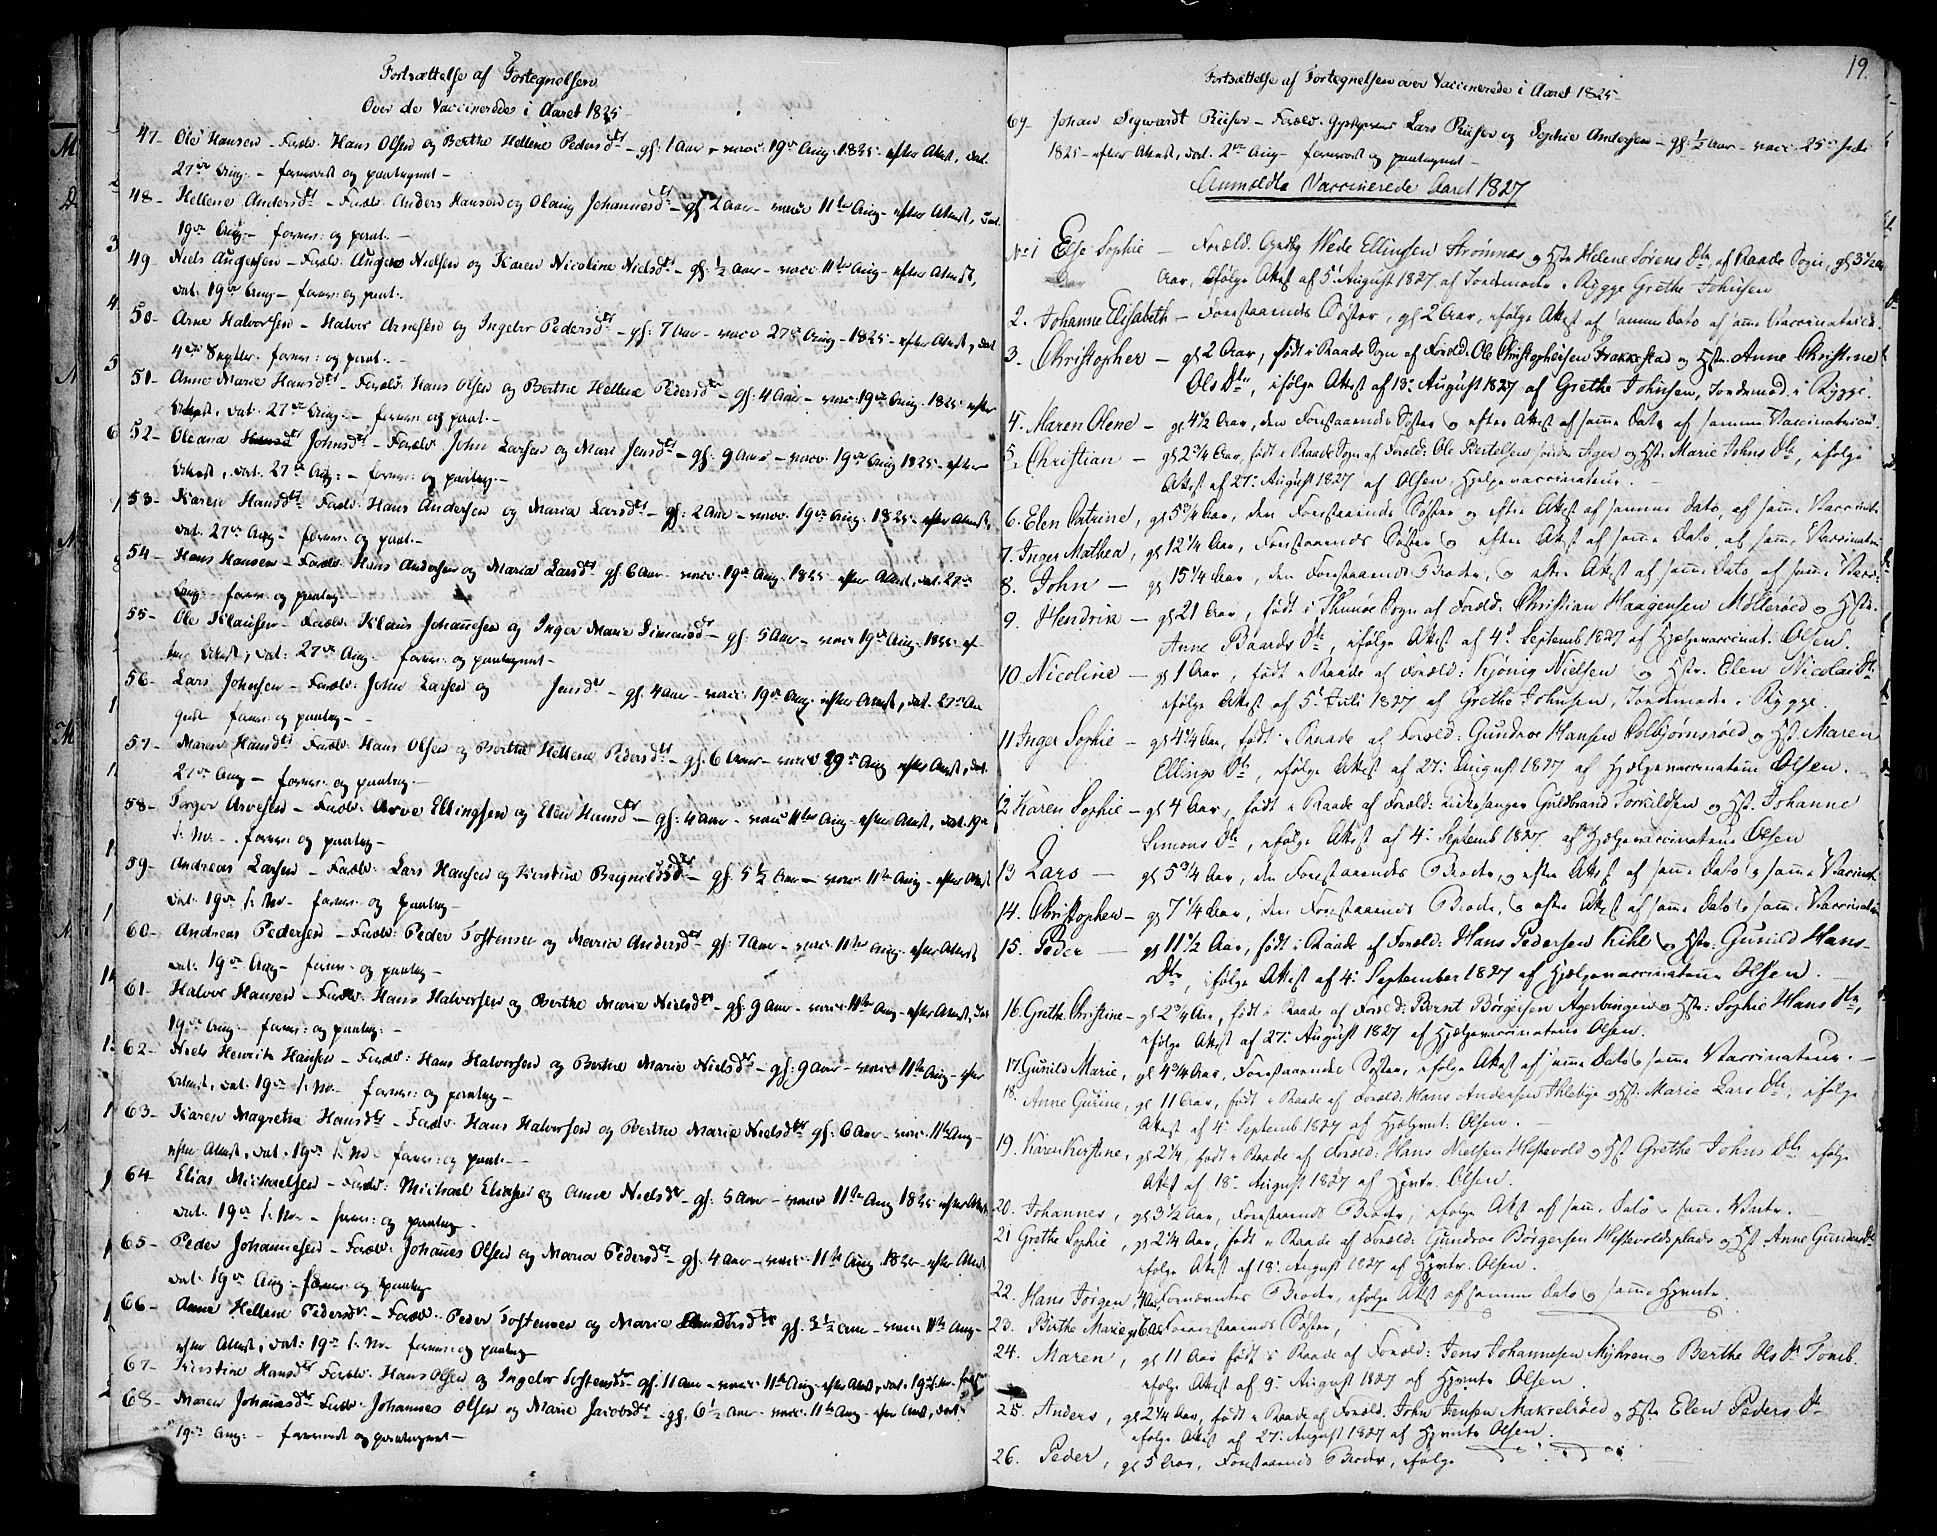 Fortsættelse af Fortegnelsen
Over de Vaccinerede i Aaret 1825
47- Ole Hansen - Foræld: Hans Olsen og Berthe Hellene Pedersdtr - gl: 1 Aar - vacc: 19de Aug: 1825 - efter Attest, dat.
27de Aug: - forevist og paategnet -
48- Hellene Andersdtr - Foræld: Anders Hansen og Olaug Johannesdtr - gl: 2 Aar - vacc 11te Aug - efter Attest, dat.
19de Aug - forev: og paat. -
49- Niels Augensen - Foræld: Augen Nielsen og Karen Nicoline Nielsdtr - gl: 1/2 Aar - vacc: 11te Aug - efter Attest,
dat. 19de Aug - forev: og paat: -
50- Arne Halvorsen - Halvor Arnesen og Ingebor Pedersdtr - gl: 7 Aar - vacc 27de Aug - 1825 - efter Attest, dat
4de Septbr. forev: og paat. -
51- Anne Marie Hansdtr - Foræld: Hans Olsen og Berthe Hellene Pedersdtr - gl: 4 Aar - vacc: 19de Aug: 1825 efter
Attest, dat. 27de Aug: - forev: og paat. -
52- Oleana Johnsdtr - Foræld: John Larsen og Mari Jensdtr - gl: 9 Aar - vacc. 19de Aug 1825 - efter
Attest, dat. 27de Aug: - forev: og paateg. -
53- Karen Hansdtr Foræld: Hans Andersen og Maria Larsdtr - gl: 2 Aar - vacc: 19de Aug: 1825 - efter Attest,
dat. 27de Aug - forev: og paat. -
54- Hans Hansen - Foræld: Hans Andersen og Maria Larsdtr gl: 6 Aar - vacc: 19de Aug: 1825 - efter Attest, dat. 27de
Aug: - forev: og paateg -
55- Ole Klausen - Foræld: Klaus Johannesen og Inger Marie Simensdtr - gl: 5 Aar - vacc: 19de Aug: 1825 ef-
ter Attest, dat: 27de Aug. forev: og paategnet -
56- Lars Johnsen - Foræld: John Larsen og Jensdtr - gl: 4 Aar - vacc: 19de Aug: efter Attest, dat. 27de Au
gust forev: og paateg -
57- Maren Hansdtr Foræld: Hans Olsen og Berthe Hellene Pedersdtr - gl: 6 Aar - vacc 19de Aug efter Attest, dat.
27de Aug - forev: og paateg: -
58- Torger Arvesen - Foræld: Arve Ellingsen og Elen Hansdtr - gl: 4 Aar - vacc 11te Aug - efter Attest, dat. 19de
s: M. - forev: og paateg -
59- Andreas Larsen - Foræld: Lars Hansen og Kirstine Brynildsdtr - gl: 5 1/2 Aar - vacc. 11te Aug - efter Attest
dat. 19de s: M - forev: og paateg -
60- Andreas Pedersen - Foræld: Peder Tostensen og Maria Andersdtr - gl: 7 Aar - vacc: 11te Aug: efter Attest
dat. 19de Aug - forev: og paateg -
61- Halvor Hansen - Foræld: Hans Halvorsen og Berthe Marie Nielsdtr - gl: 9 Aar - vacc: 11te Aug - efter Attest, dat
19de Aug - forev: og paateg: -
62- Niels Henrik Hansen - Foræld: Hans Halvorsen og Berthe Marie Nielsdtr - gl: 9 Aar - vacc 11te Aug - efter
Attest, dat. 19de s: M - forev: og paateg -
63- Karen Magrethe Hansdtr - Foræld: Hans Halvorsen og Berthe Marie Nielsdtr gl: 6 Aar - vacc: 11te Aug -
efter Attest, dat. 19de s: M - forev: og paat: -
64 Elias Michaelsen - Foræld: Michael Eliasen og Anne Nielsdtr - gl: 5 Aar - vacc 11te Aug 1825 efter Attest
dat. 19de s: M - forev: og paateg -
65- Peder Johannesen - Foræld: Johannes Olsen og Maria Pedersdtr - gl: 4 Aar - vacc: 11te Aug 1825 - efter Attest
dat. 19de Aug: - forev: og paateg
66- Anne Hellene Pedersdtr - Foræld: Peder Tostensen og Maria Andersdtr gl: 3 1/2 Aar - vacc: 11te Aug -
efter Attest, dat: 19de s: M - forev: og paateg
67- Kirstine Hansdtr Foræld: Hans Olsen og Ingebor Tostensdtr - gl: 11 Aar - vacc: 11te Aug: efter Attest, dat. 19de s: M -
68- Maren Johannesdtr Foræld: Johannes Olsen og Marie Jacobsdtr - gl: 6 1/2 Aar - vacc: 11te Aug - efter Attest, dat.
19de Aug: - forevist og paategnet -
19.
Fortsættelse af Fortegnelsen over Vaccinerede i Aaret 1825-
69- Johan Sigwardt Riiser - Foræld: Lars Riiser og Sophie Andersen - gl: 1/2 Aar - vacc: 25de Juli
1825 - efter Attest, dat. 2den Aug - forevist og paategnet -
Anmeldte Vaccinerede Aaret 1827
No 1 Else Sophie - Foræld. Wede Ellingsen Strømnæs og Hstr Helene Sørens Dtr, af Raade Sogn, gl 3 1/2
Aar, ifølge Attest af 5t August 1827 af Jordemoder i Rygge Grethe Johnsen
2. Johanne Elisabeth - Forestaaendes Søster, gl 2 Aar, ifølge Attest af samme Dato af samme Vaccinatrice.
3. Christopher - gl 2 Aar, født i Raade Sogn af Foræld: Ole Christophersen Frakkestad og Hstr. Anne Christine
Ols Dtr, ifølge Attest af 13: August 1827 af Grethe Johnsen, Jordemod. i Rygge.
4. Maren Olene - gl 4 1/2 Aar, den Forestaaendes Søster og efter Attest af samme Dato af samme Vaccinatrice.
5. Christian - gl 2 3/4 Aar, født i Raade Sogn af Foræld: Ole Bertelsen søndre Ager og Hst. Marie Johns Dtr, ifølge
Attest af 27: August 1827 af Olsen, Hjelpevaccinateur. -
6. Elen Catrine, gl 5 3/4 Aar, den Forestaaendes Søster og efter Attest af samme Dato, af samme Vaccinatr
7. Inger Mathea, gl 12 1/4 Aar, Forestaaendes Søster og efter Attest af samme Dato, af samme Vaccinateu
8. John - gl 15 1/4 Aar, den Forestaaendes Broder, og efter Attest af samme Dato af samme Vacc:
9. Hendrik - gl 21 Aar, født i Thunøe Sogn af Foræld: Christian Haagensen Mølleröed og Hstr.
Anne Baards Dtr, ifølge Attest af 4: Septemb 1827 af Hjelpevaccinat. Olsen.
10. Nicoline - gl 1 Aar, født i Raade af Foræld: Kjønig Nielsen og Hstr. Elen Nicolai Dtr
ifølge Attest af 5t Juli 1827 af Grethe Johnsen, Jordemoder i Rygge.
11 Inger Sophie - gl 4 1/4 Aar, født i Raade af Foræld: Gundroe Hansen Colbjørnsröed og Hst Maren
Ellings Dtr, ifølge Attest af 27: August 1827 af Hjelpevaccinateur Olsen. -
12 Karen Sophie - gl 4 Aar, født i Raade af Foræld: Kirkesanger Guldbrand Torkildsen og Hst. Johanne
Simons Dtr, ifølge Attest af 4: Septemb 1827 af Hjelpevaccinateur Olsen
13 Lars - gl 5 3/4 Aar, den Forestaaendes Broder, og efter Attest af samme Dato og samme Vaccinat.
14. Christopher - gl 7 1/4 Aar, den Forestaaendes Broder, og efter Attest af samme Dato og samme Vaccinateu
15. Peder - gl 11 1/2 Aar, født i Raade af Foræld: Hans Pedersen Kihl og Hstr: Gunild Hans-
Dtr, ifølge Attest af 4: September 1827 af Hjelpevaccinateur Olsen.
16. Grethe Christine - gl 2 3/4 Aar, født i Raade af Foræld: Bernt Børgersen Agerbingen og Hstr: Sophie Hans Dtr,
ifølge Attest af 27: August 1827 af Hjelpevaccinateur Olsen.
17. Gunild Marie, gl 4 3/4 Aar, Forestaaendes Søster, ifølge Attest af samme Dato og samme Vaccinateur. -
18. Anne Gurine, gl 11 Aar, født i Raade af Foræld: Hans Andersen Thlebye og Hst. Marie Lars Dtr, ifølge
Attest af 4: Septemb 1827 af Hjelpvact. Olsen. -
19. Karen Kirstine, gl 2 1/4, født i Raade af Foræld: Hans Nielsen Hestevold og Hst Grethe Johns Dtr ifølge
Attest af 18: August 1827 af Hjvctr. Olsen.
20. Johannes, gl 3 1/2 Aar, Forestaaendes Broder, ifølge Attest af samme Dato og samme Vactr.
21 Grethe Sophie, gl 2 1/4 Aar, født i Raade af Foræld: Gundroe Børgersen Hestevoldsplads og Hst Anne Gunders Dtr
ifølge Attest af 18: August 1827 af Hjvctr. Olsen.
22. Hans Jørgen 4 Aar, Fornævntes Broder, ifølge Attest af samme Dato og samme Hjvctr.
23. Birthe Marie gl 6 Aar Forestaaendes Søster,
24. Maren, gl 11 Aar født i Raade af Foræld: Jens Johannesen Myhren og Berthe Ols Dtr Tomb.
ifølge Attest af 9: August 1827 af Hjvctr Olsen.
25. Anders, gl 2 1/4 Aar, født i Raade af Foræld. John Jensen Makrelröed og Hstr Elen Peders Dtr
ifølge Attest af 27: August 1827 af Hjvctr Olsen.
26. Peder, gl 5 Aar, Forestaaendes Broder, ifølge